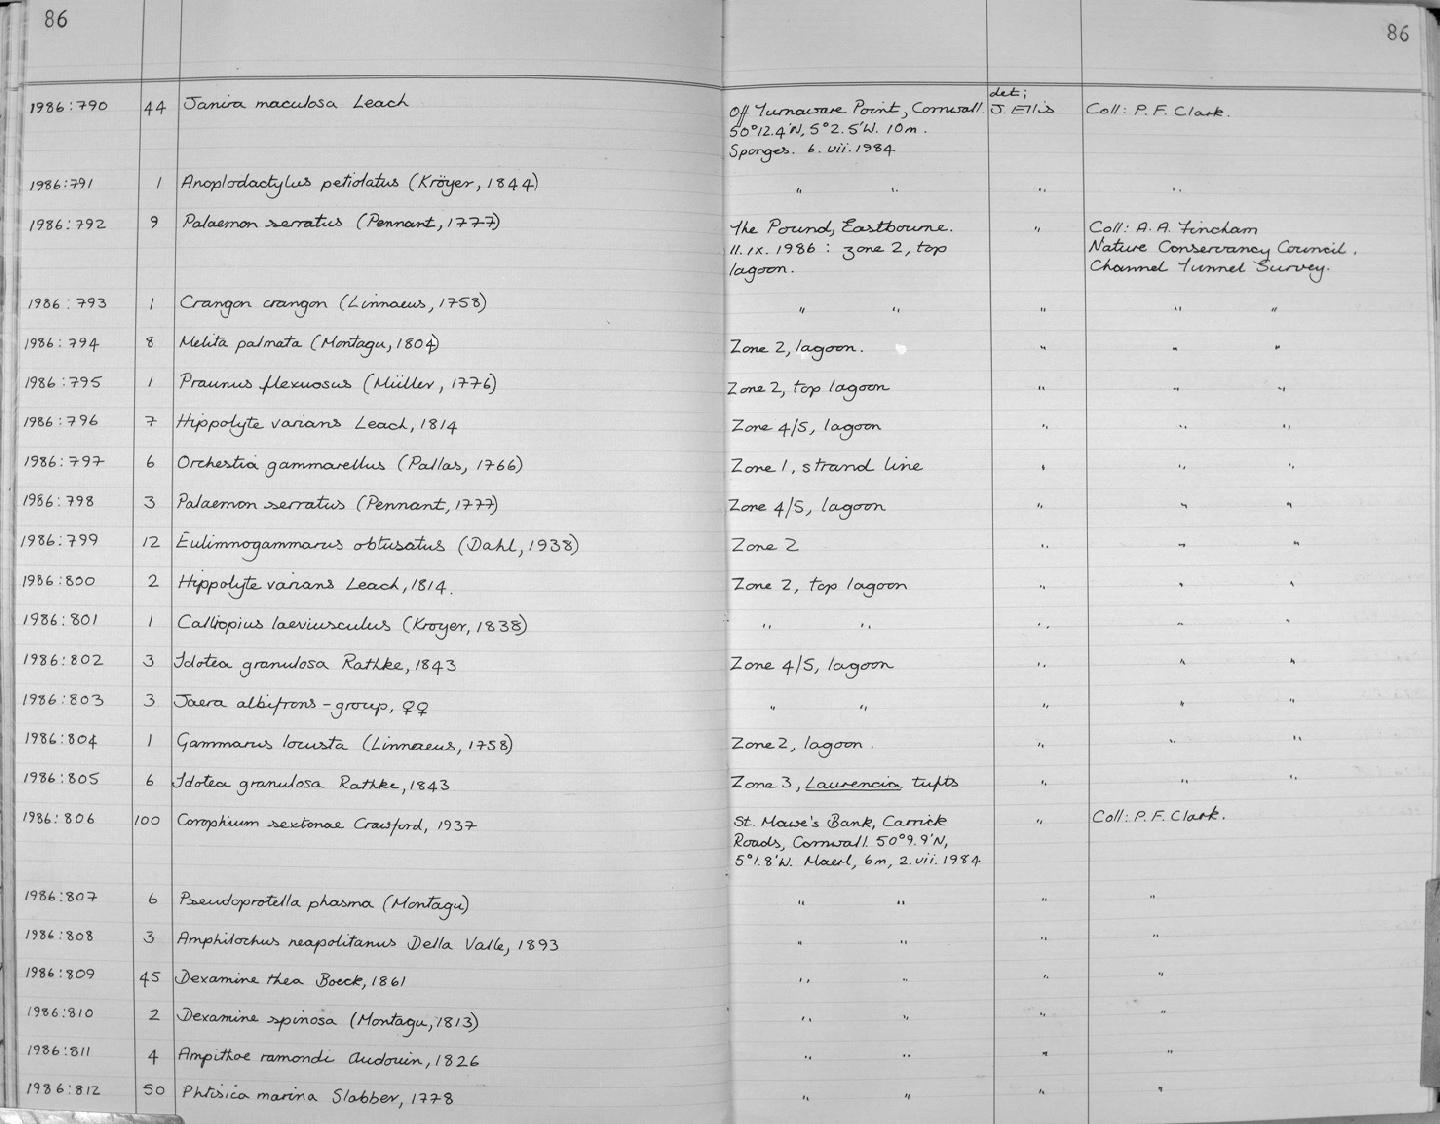 86
86
det;
1986:790 44 Janira maculosa Leach Off Turnaware Point, Cornwall. J. Ellis Coll: P. F. Clark.
50°12.4'N, 5°2.5'W. 10m.
Sponges. 6.vii.1984
1986:791 1 Anoplodactylus petiolatus (Kröyer, 1844) " " " "
1986:792 9 Palaemon serratus (Pennant, 1777) The Pound, Eastbourne. " Coll: A. A. Fincham
11.ix.1986 : zone 2, top Nature Conservancy Council.
lagoon. Channel Tunnel Survey.
1986:793 1 Crangon crangon (Linnaeus, 1758) " " " " "
1986:794 8 Melita palmata (Montagu, 1804) Zone 2, lagoon. " " "
1986:795 1 Praunus flexuosus (Müller, 1776) Zone 2, top lagoon " " "
1986:796 7 Hippolyte varians Leach, 1814 Zone 4/5, lagoon " " "
1986:797 6 Orchestia gammarellus (Pallas, 1766) Zone 1, strand line " " "
1986:798 3 Palaemon serratus (Pennant, 1777) Zone 4/5, lagoon " " "
1986:799 12 Eulimnogammarus obtusatus (Dahl, 1938) Zone 2 " " "
1986:800 2 Hippolyte varians Leach, 1814. Zone 2, top lagoon " " "
1986:801 1 Calliopius laeviusculus (Kroyer, 1838) " " " " "
1986:802 3 Idotea granulosa Rathke, 1843 Zone 4/5, lagoon " " "
1986:803 3 Jaera albifrons-group, ♀♀ " " " " "
1986:804 1 Gammarus locusta (Linnaeus, 1758) Zone 2, lagoon " " "
1986:805 6 Idotea granulosa Rathke, 1843 Zone 3, Laurencia tufts " " "
1986:806 100 Corophium sextonae Crawford, 1937 St. Mawe's Bank, Carrick " Coll: P. F. Clark.
Roads, Cornwall. 50°9.9'N,
5°1.8'W. Maerl, 6m, 2.vii.1984
1986:807 6 Pseudoprotella phasma (Montagu) " " " "
1986:808 3 Amphilochus neapolitanus Della Valle, 1893 " " " "
1986:809 45 Dexamine thea Boeck, 1861 " " " "
1986:810 2 Dexamine spinosa (Montagu, 1813) " " " "
1986:811 4 Ampithoe ramondi Audouin, 1826 " " " "
1986:812 50 Phtisica marina Slabber, 1778 " " " "